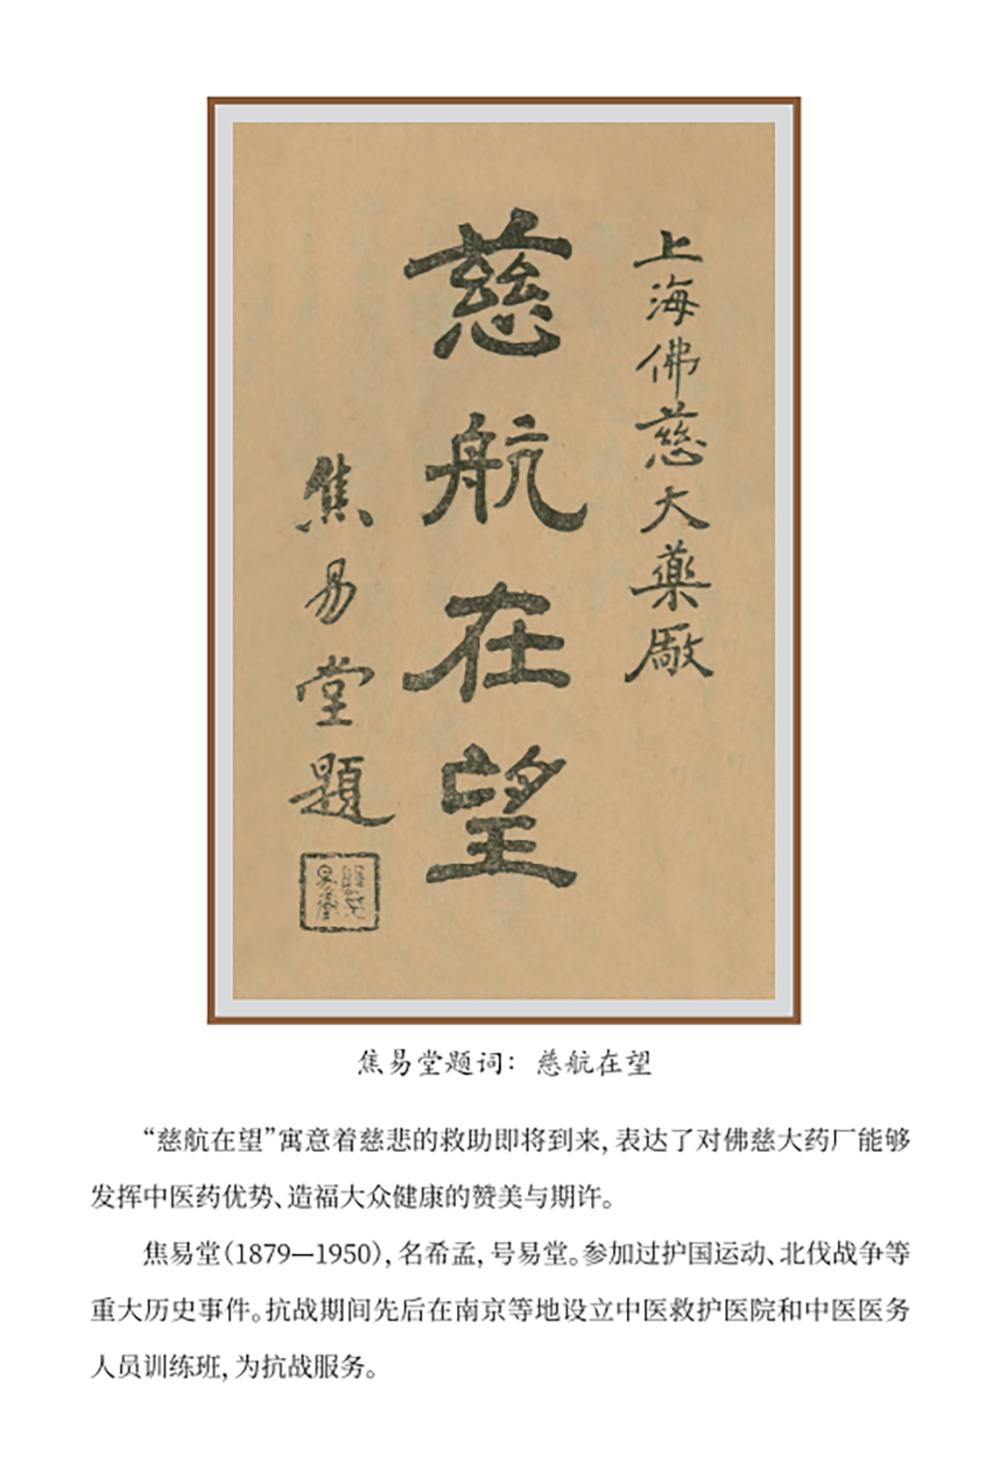 上海佛慈大藥厰
慈航在望
焦易堂題
焦易堂题词：慈航在望
“慈航在望”寓意着慈悲的救助即将到来，表达了对佛慈大药厂能够
发挥中医药优势、造福大众健康的赞美与期许。
焦易堂（1879—1950），名希孟，号易堂。参加过护国运动、北伐战争等
重大历史事件。抗战期间先后在南京等地设立中医救护医院和中医医务
人员训练班，为抗战服务。